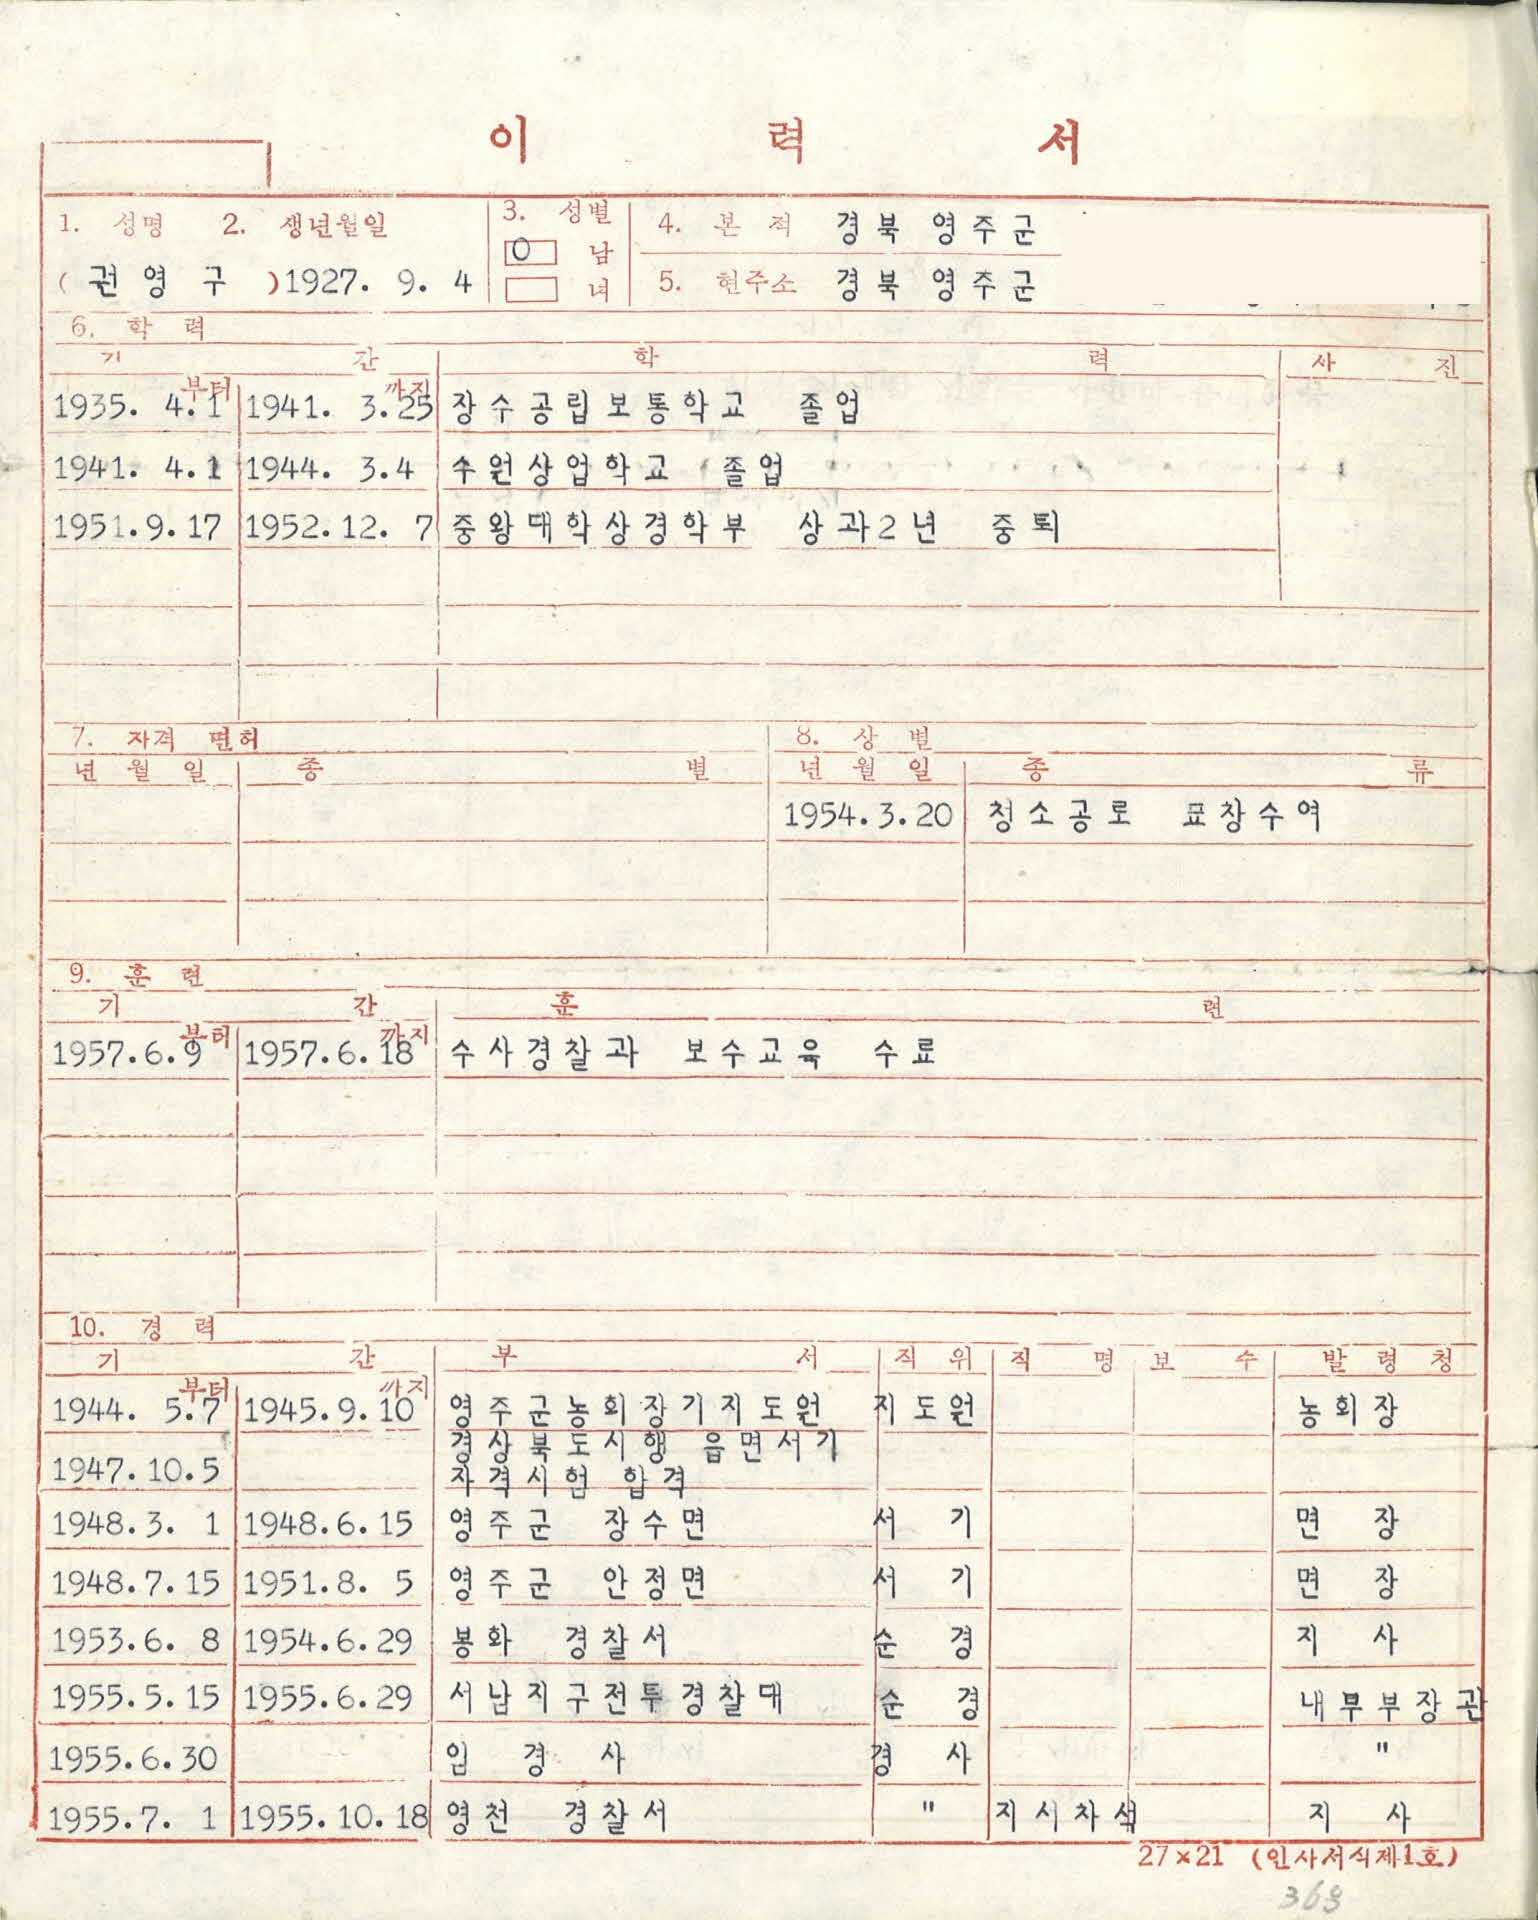 이 력 서
1. 성명 2. 생년월일 3. 성별 4. 본 적 경북 영주군
0 남
( 권영구 ) 1927. 9. 4 녀 5. 현주소 경북 영주군
6. 학 력
기 간 학 력 사 진
부터 까지
1935. 4.1 1941. 3.25 장수공립보통학교 졸업
1941. 4.1 1944. 3.4 수원상업학교 졸업
1951.9.17 1952.12. 7 중왕대학상경학부 상과2년 중퇴
7. 자격 면허 8. 상 벌
년 월 일 종 별 년 월 일 종 류
1954.3.20 청소공로 표창수여
9. 훈 련
기 간 훈 련
부터 까지
1957.6.9 1957.6.18 수사경찰과 보수교육 수료
10. 경 력
기 간 부 서 직 위 직 명 보 수 발 령 청
부터 까지
1944. 5.7 1945.9.10 영주군농회장기지도원 지도원 농회장
경상북도시행 읍면서기
1947.10.5 자격시험 합격
1948.3. 1 1948.6.15 영주군 장수면 서 기 면 장
1948.7.15 1951.8. 5 영주군 안정면 서 기 면 장
1953.6. 8 1954.6.29 봉화 경찰서 순 경 지 사
1955.5.15 1955.6.29 서남지구전투경찰대 순 경 내무부장관
1955.6.30 임 경 사 경 사 "
1955.7. 1 1955.10.18 영천 경찰서 " 지시차석 지 사
27×21 (인사서식제1호)